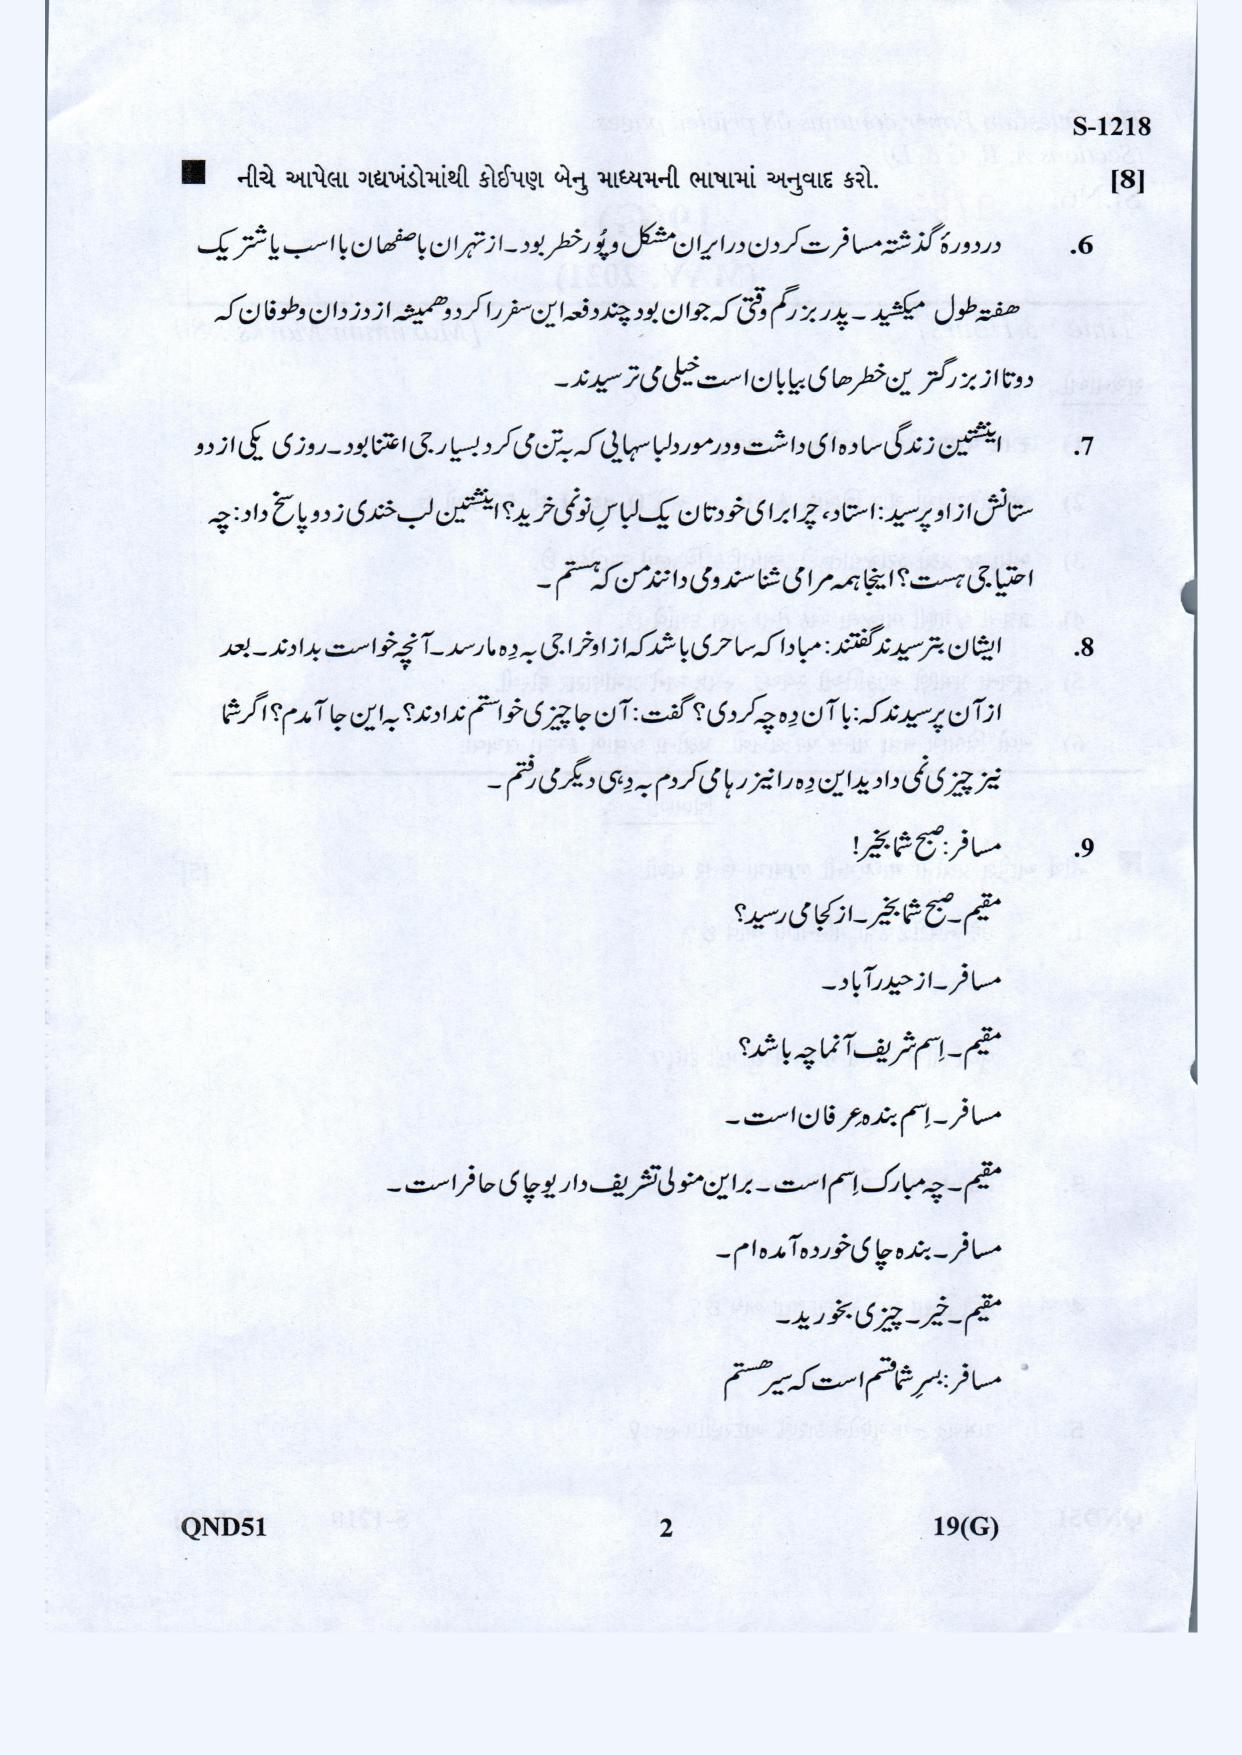 S-1218
■ નીચે આપેલા ગદ્યખંડોમાંથી કોઈપણ બેનુ માધ્યમની ભાષામાં અનુવાદ કરો. [8]
6. در دورۀ گذشتہ مسافرت کردن در ایران مشکل و پُور خطر بود۔ از تہران با صفہان با اسب یا شتر یک
ھفتہ طول میکشید ۔ پدر بزرگم وقتی کہ جوان بود چند دفعہ این سفر را کرد و ھمیشہ از دزدان و طوفان کہ
دو تا از بزرگترین خطرھای بیابان است خیلی می ترسیدند۔
7. اینشتین زندگی سادہ ای داشت و در مورد لباسہایی کہ بہ تن می کرد بسیار جی اعتنا بود۔ روزی یکی از دو
ستانش از او پرسید: استاد، چرا برای خودتان یک لباسِ نو نمی خرید؟ اینشتین لب خندی زد و پاسخ داد: چہ
احتیاجی ہست؟ اینجا ہمہ مرا می شناسند و می دانند من کہ ہستم ۔
8. ایشان بترسیدند گفتند: مبادا کہ ساحری باشد کہ از او خراجی بہ دِہ ما رسد۔ آنچہ خواست بدادند۔ بعد
از آن پرسیدند کہ: با آن دِہ چہ کردی؟ گفت: آن جا چیزی خواستم ندادند؟ بہ این جا آمدم؟ اگر شما
نیز چیزی نمی دادید این دِہ را نیز رہا می کردم بہ دِہی دیگر می رفتم ۔
9. مسافر: صبح شما بخیر!
مقیم۔ صبح شما بخیر۔ از کجا می رسید؟
مسافر۔ از حیدرآباد۔
مقیم۔ اِسم شریف آنما چہ باشد؟
مسافر۔ اِسم بندہ عِرفان است ۔
مقیم۔ چہ مبارک اِسم است۔ بر این منولی تشریف داریو چای حافر است۔
مسافر۔ بندہ چای خوردہ آمدہ ام۔
مقیم۔ خیر۔ چیزی بخورید۔
مسافر: بسرِ شما قسم است کہ سیر ھستم
QND51 2 19(G)